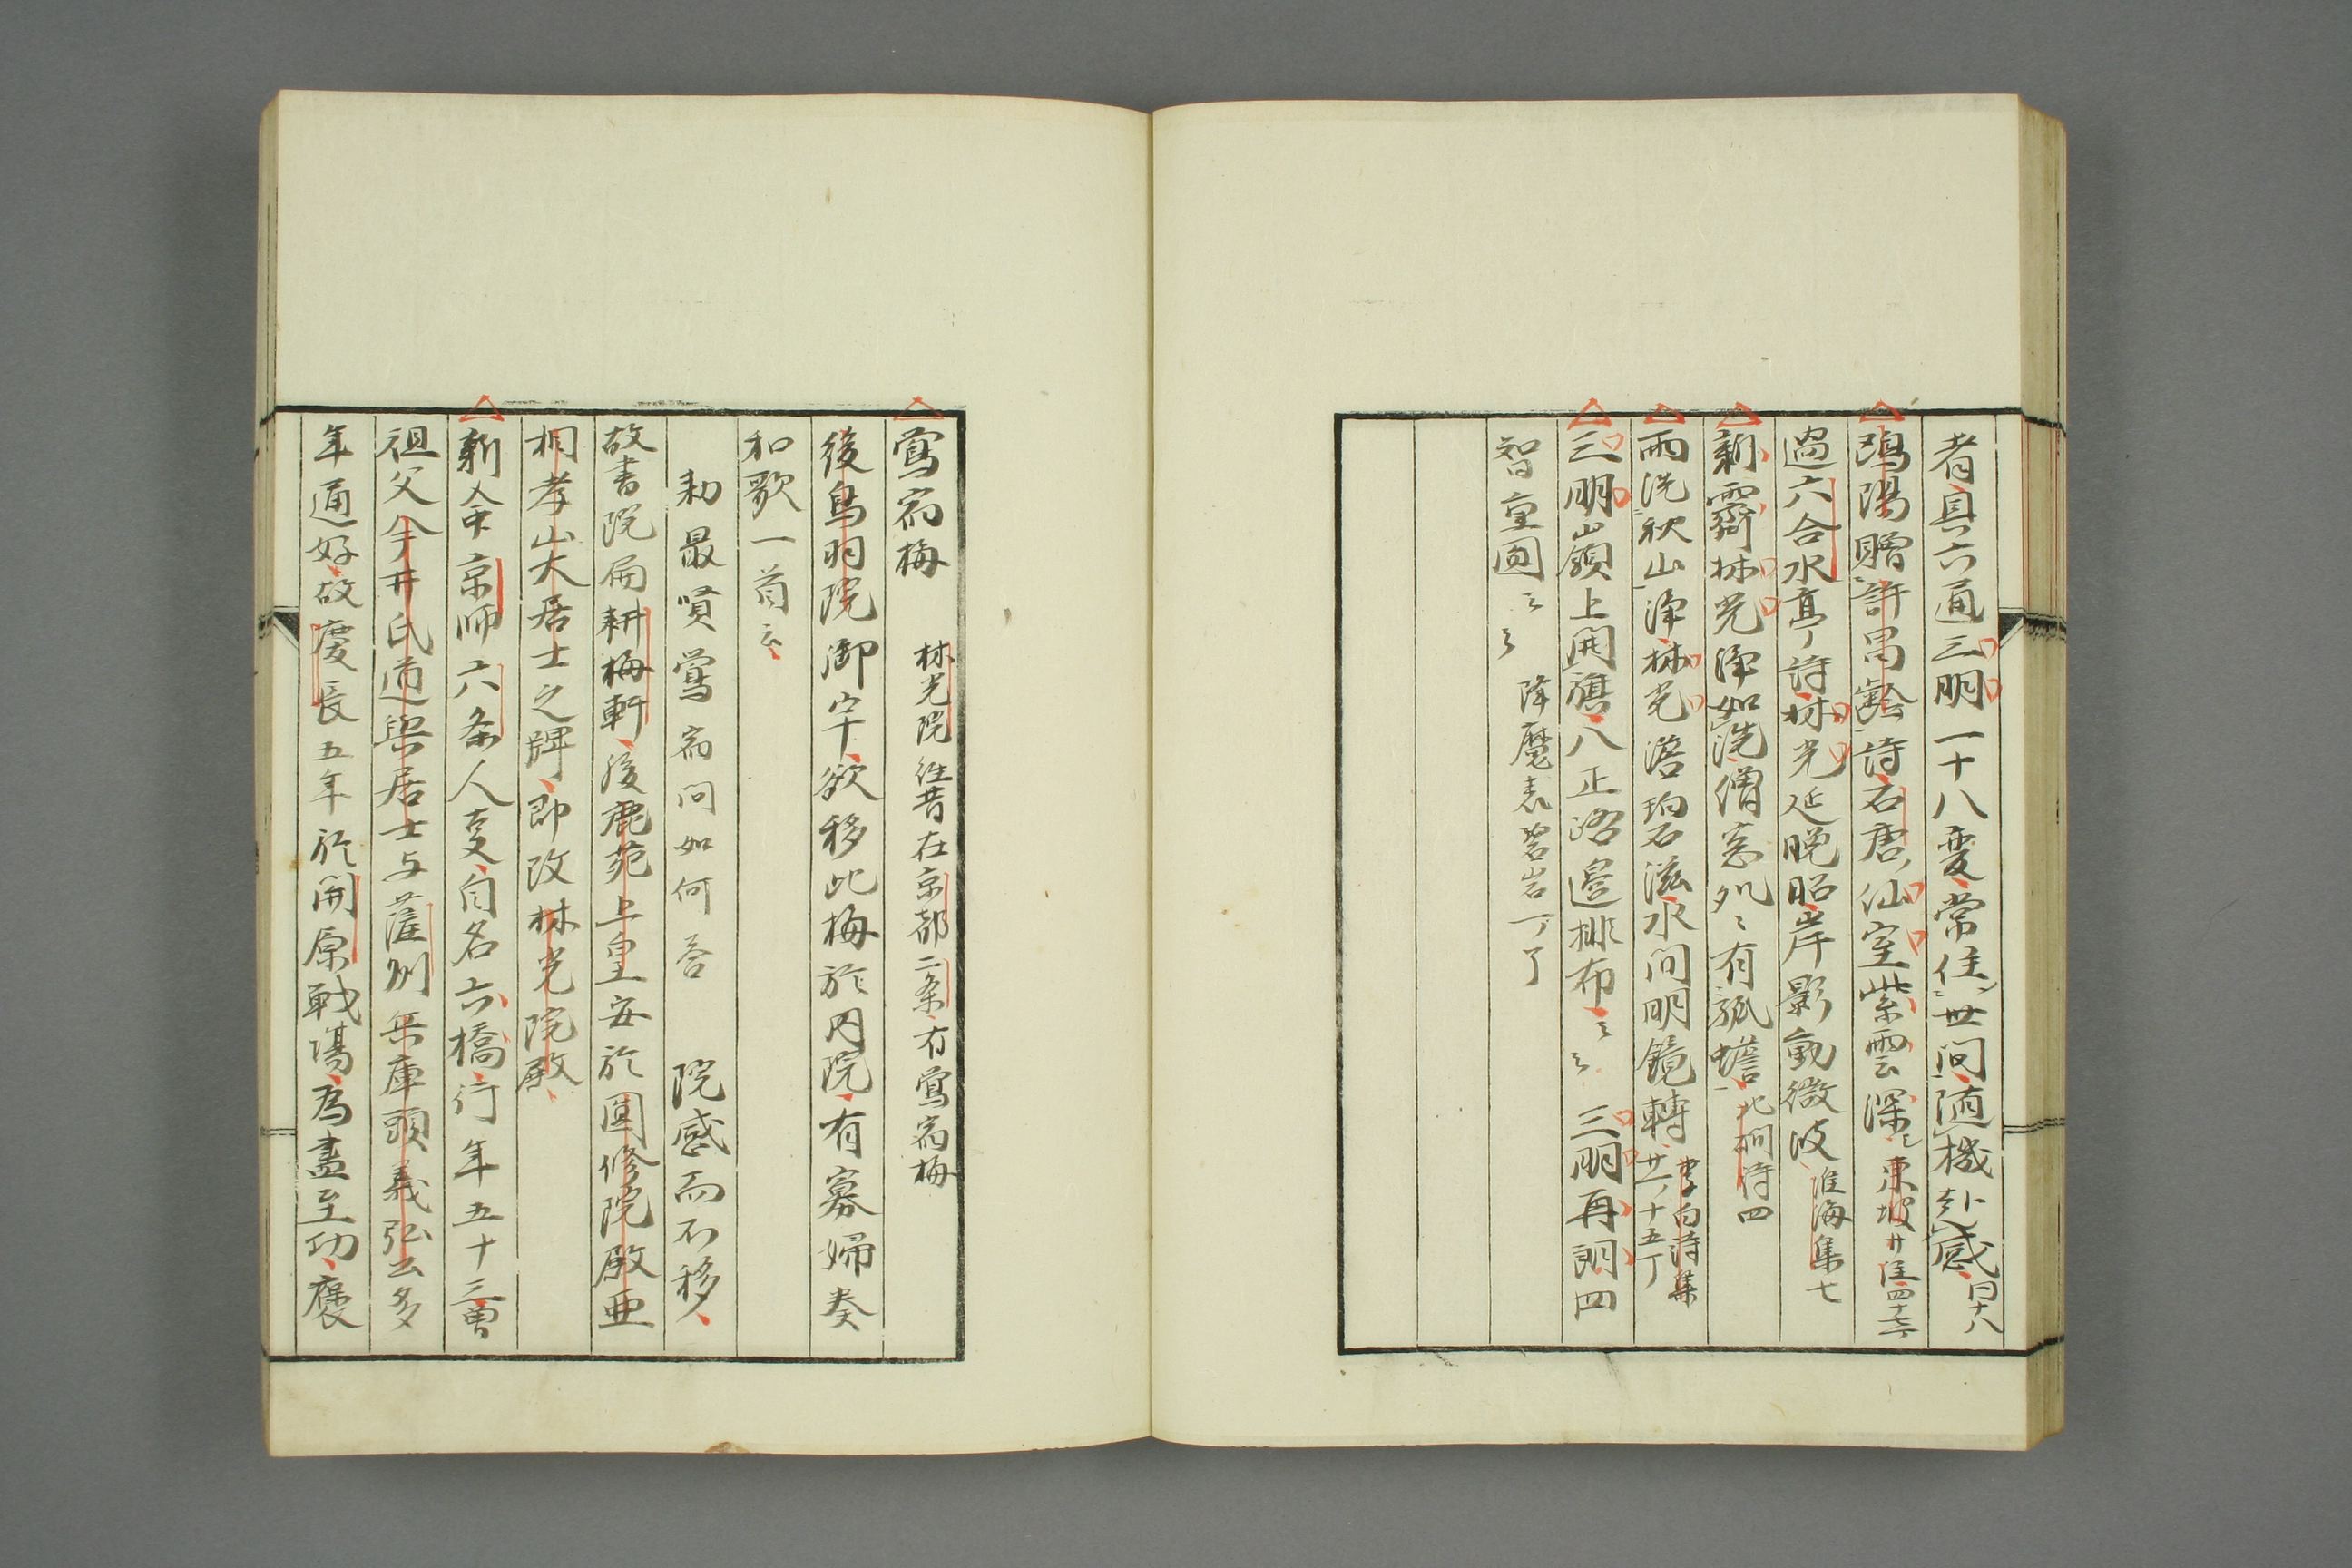 者具六通三明一十八変常住世间随機赴感同十八
鴎陽贈許昌齡詩石唐仙室紫雲深 東坡廿
過六合水亭詩林光延晚照岸影動微波 淮海集七
新霽林光淨如洗僧窓処〻有孤蟾 北磵诗四
雨洗秋山淨林光澹碧滋水间明鏡轉 李白诗集廿一ノ十五丁
三明嶺上開旗八正路邊排布〻〻 三明再朗四
智重圓〻〻 降魔表碧岩一ノ了
鶯宿梅 林光院往昔在京都二条有鶯宿梅
後鳥羽院御宇欲移此梅於内院有寡婦奏
和歌一首云
勅最賢鶯宿问如何答 院感而不移
故書院扁耕梅軒後鹿苑上皇安於圓修院殿亜
相孝山大居士之牌即改林光院殿
新命京师六条人支自名六橋行年五十三曽
祖父今井氏道與居士与薩州兵庫頭義弘公多
年通好故慶長五年於開原戦場為盡至功褒